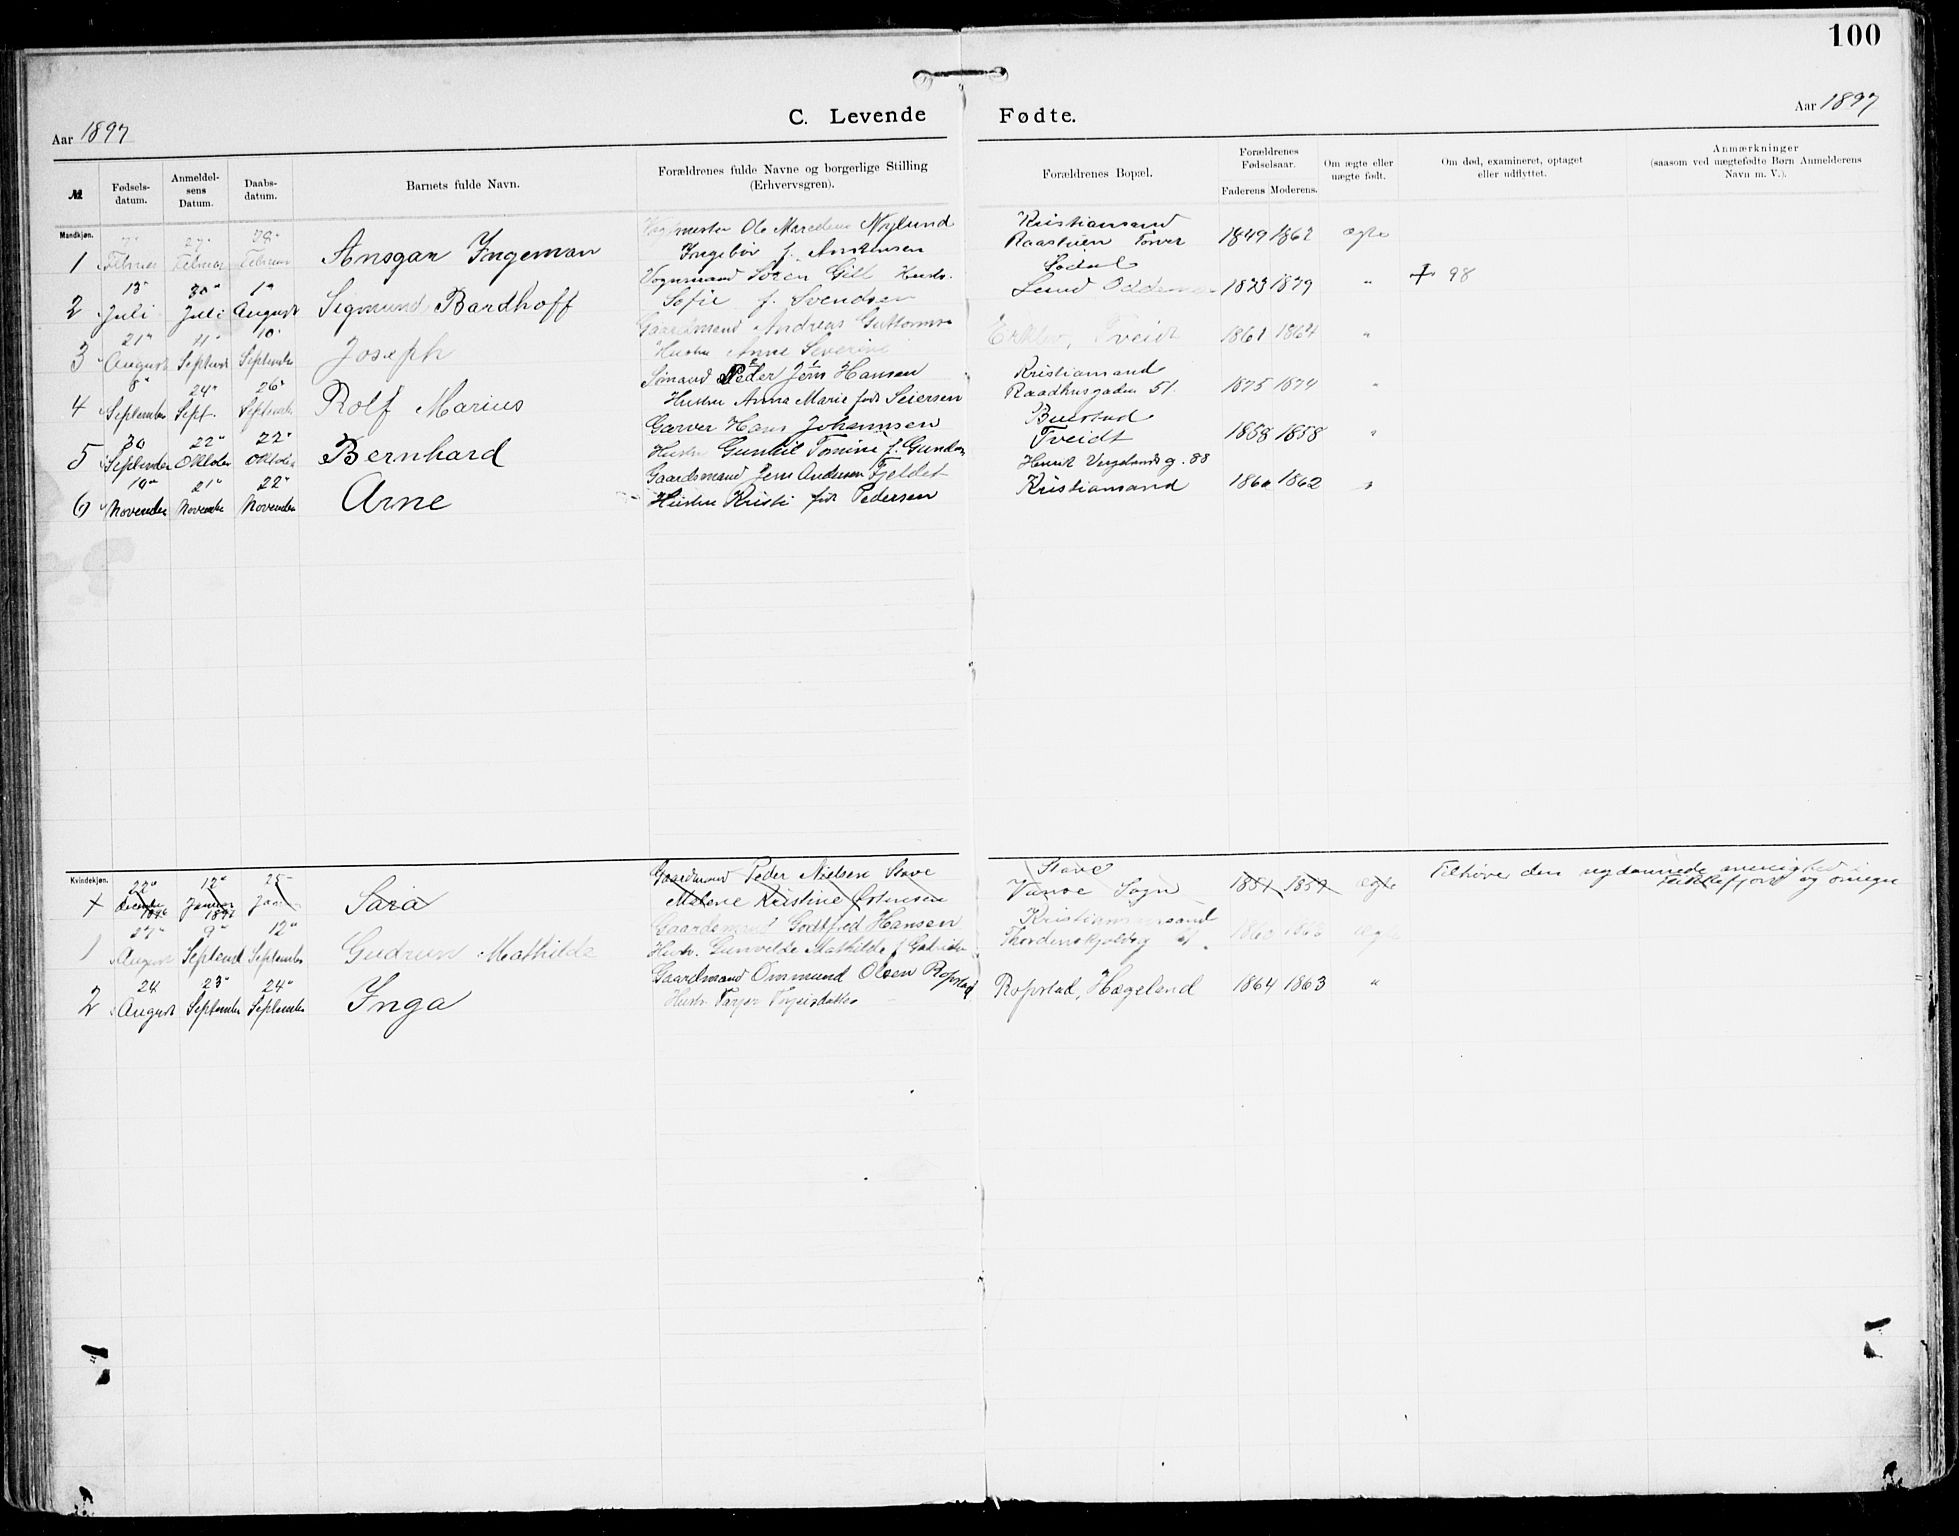 100
C. Levende Fødte.
Aar 1897
Aar 1897
№
Fødsels-datum.
Anmeldel-sens Datum.
Daabs-datum.
Barnets fulde Navn.
Forældrenes fulde Navne og borgerlige Stilling (Erhvervsgren).
Forældrenes Bopæl.
Forældrenes Fødselsaar.
Faderens Moderens.
Om ægte eller uægte født.
Om død, examineret, optaget eller udflyttet.
Anmærkninger (saasom ved uægtefødte Børn Anmelderens Navn m. V.).
Mandkjøn.
Ole Marcelius Nylund Kristiansand
1 Februar Februar Februar Ansgar Ingeman Torvet 1849 1862 ægte
13" 30" 1" Vognmand Søren Gill Hustr. Sødal
2 Juli Juli August Sigmund Bardhoff Sofie f. Svendsen Lund Oddernes 1873 1879 " + 98
21" 11" 10" Gaardmand Andreas Guttorms
3 August Septemb September Joseph Hustru Anne Severine Tveidt 1861 1864 "
8" 24" 26" Sømand Peder Jens Hansen Kristiansand
4 September Sept. September Rolf Marius Hustru Anna Marie født Seiersen Raadhusgaden 51. 1875 1874 "
30 22" 22" Garver Hans Johannsen Buestad
5 September Oktober Oktober Bernhard Hustru Gunhil Tomine f. Gunders Tveidt 1858 1858 "
19" 21" 22" Gaardsmand Jens Andersen Fjeldet Henrik Vergelandsg. 88
6 November November November Arne Hustru Kristi født Pedersen Kristiansand 1860 1862 "
Kvindekjøn.
22" 12" 25" Gaardmand Peder Nielsen Stave Stave
+ December 1896 Januar 1897 Januar Sara Malene Kristine Østensen Vanse Sogn 1851 1857 ægte Tilhører den nydannede menighed i Flekkefjord og omegn
27" 9" 12" Gaardmand Godtfred Hansen Kristiansand
1 August Septemb September Gudrun Mathilde Hustr. Gunvelde Mathilde f. Tordenskjoldsg ægte
24 23" 24" Gaardmand Ommund Olsen Ropstad
2 August September September Inga Hustr. Ropstad, Hægeland 1864 1863 "